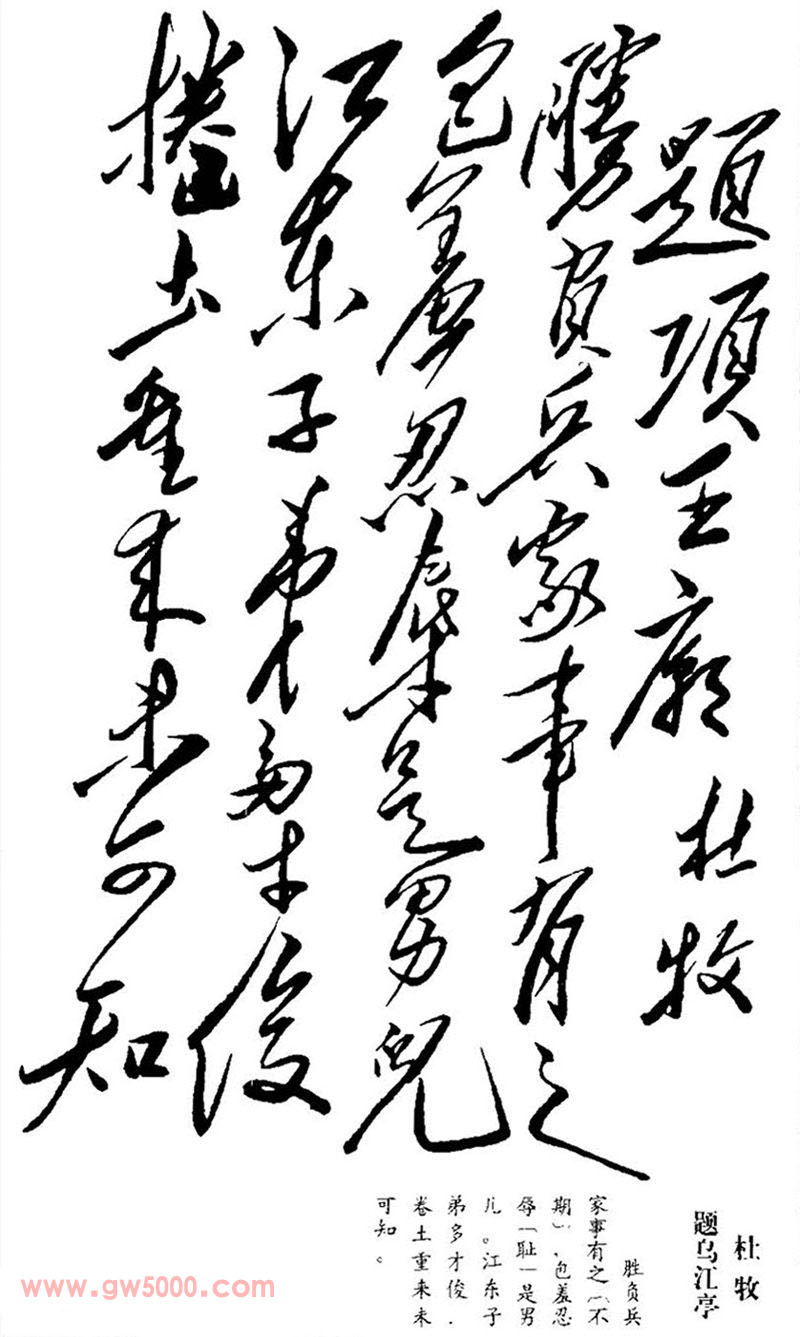 題項王廟 杜牧
勝負兵家事有之
包羞忍辱是男兒
江东子弟多才俊
捲土重来未可知
杜牧
题乌江亭
胜负兵
家事有之(不
期)、包羞忍
辱(耻)是男
儿。江东子
弟多才俊.
卷土重来未
可知。
www.gw5000.com